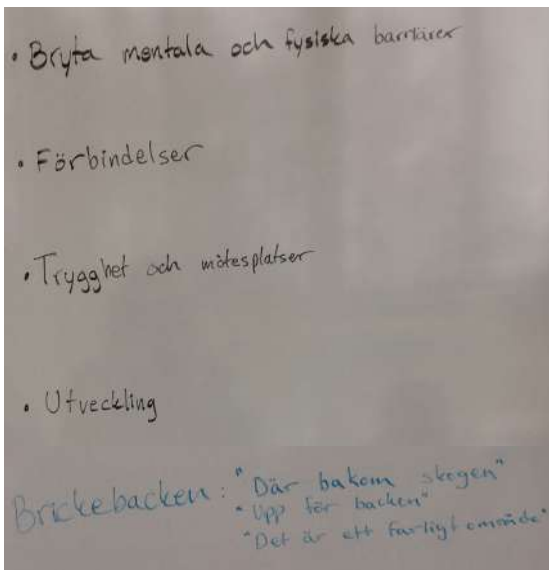 • Bryta mentala och fysiska barriärer
• Förbindelser
• Trygghet och mötesplatser
• Utveckling
Brickebacken: "Där bakom skogen"
"Upp för backen"
"Det är ett farligt område"